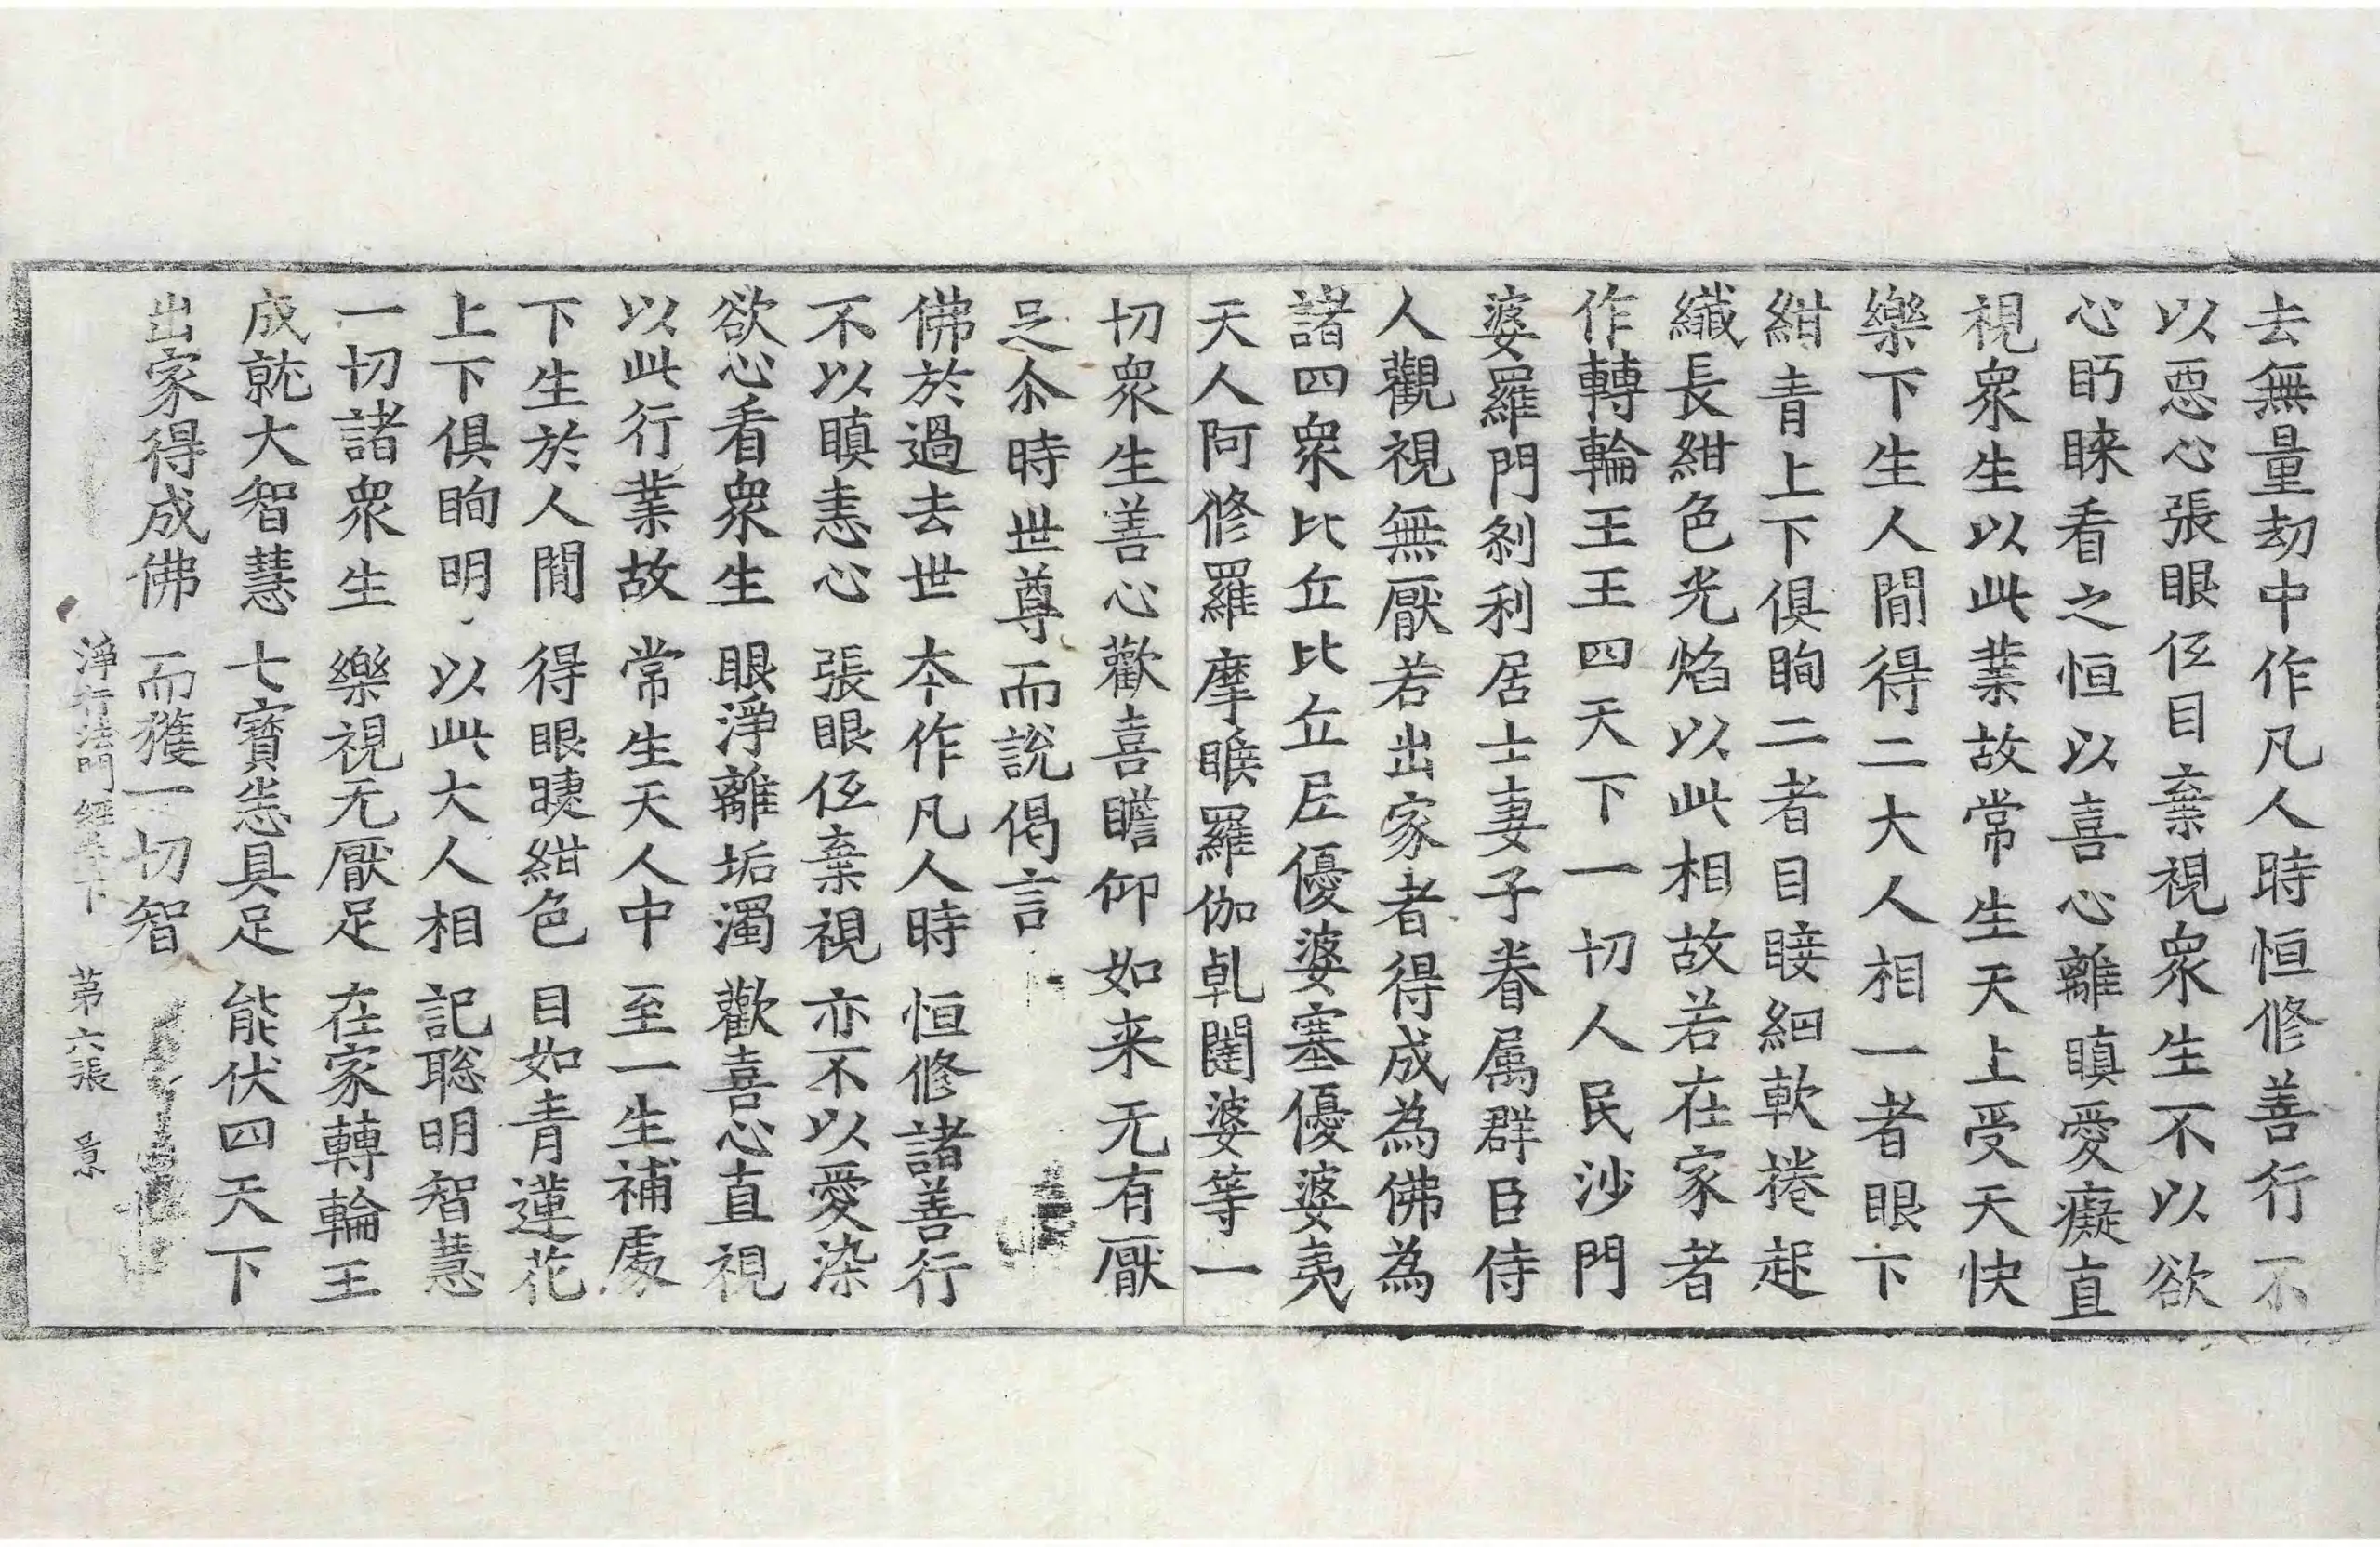 去無量劫中作凡人時恒修善行不
以惡心張眼仾目棄視衆生不以欲
心眄睞看之恒以喜心離瞋愛癡直
視衆生以此業故常生天上受天快
樂下生人間得二大人相一者眼下
紺青上下俱眴二者目睫細軟捲起
纎長紺色光焰以此相故若在家者
作轉輪王王四天下一切人民沙門
婆羅門刹利居士妻子眷属群臣侍
人觀視無厭若出家者得成為佛為
諸四衆比丘比丘尼優婆塞優婆夷
天人阿修羅摩睺羅伽乹闥婆等一
切衆生善心歡喜瞻仰如来无有厭
足尒時世尊而說偈言
佛於過去世 本作凡人時 恒修諸善行
不以瞋恚心 張眼仾棄視 亦不以愛染
欲心看衆生 眼淨離垢濁 歡喜心直視
以此行業故 常生天人中 至一生補處
下生於人間 得眼睫紺色 目如青蓮花
上下俱眴明 以此大人相 記聡明智慧
一切諸衆生 樂視无厭足 在家轉輪王
成就大智慧 七寶悉具足 能伏四天下
出家得成佛 而獲一切智
淨行法門經卷下 第六張 景